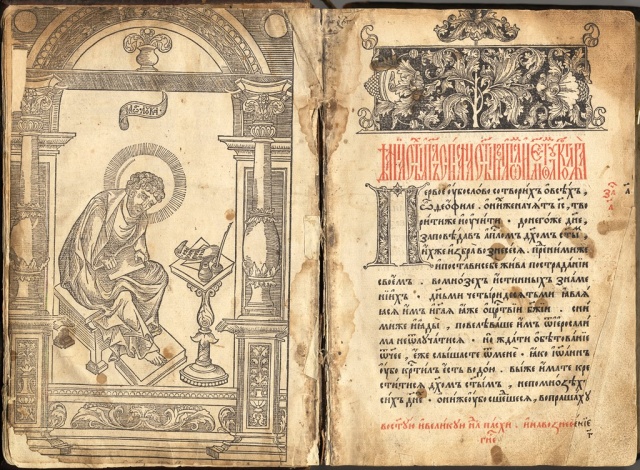 Первое убо слово сотворихъ о всѣхъ,
ѽ ѳеофиле. о нихже начатъ іс҃, тво
ритиже и учити. донегоже дн҃е,
заповѣдавъ апⷭ҇лом дх҃ом ст҃ы
ихже избра вознесесѧ. пред нимиже
и постави себе жива по страданїи
своемъ. во мнозехъ истинныхъ знаме
нихъ. дньми четыридесѧтьми ꙗвлѧ
ꙗсѧ имъ, и гл҃ѧ ꙗже о црⷭ҇твїи бж҃їи. с ни
миже и ꙗды, повелѣваше имъ ѿ іерⷭ҇али
ма не ѿлучатисѧ. но ждати обѣтованїе
ѿч҃ее, еже слышасте ѿ мене. ꙗко іѡаннъ
убо крⷭ҇тилъ есть водою. выже имате кре
ститисѧ дх҃омъ ст҃ымъ, не по мнозѣхъ
сихъ дн҃ехъ. ониже убо сошедшесѧ, вопрашаху
в ст҃ую и великую нл҃ю пасхи. и на вознесенїе
гн҃е